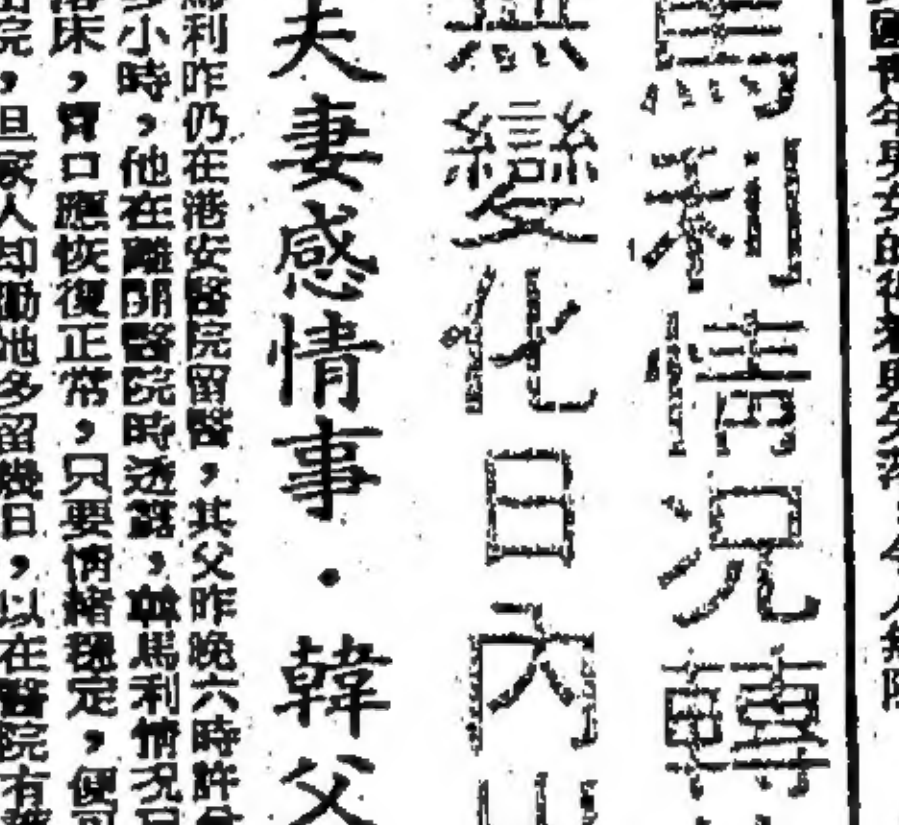 國青年男女的
馬利情況轉
無變化日內
夫妻感情事·韓父
馬利昨仍在港安醫院留醫，其父昨晚六時許
多小時，他在離開醫院時透露，馬利情況
落床，胃口應恢復正常，只要情緒穩定，便可
出院，但家人却勸他多留幾日，以在醫院有